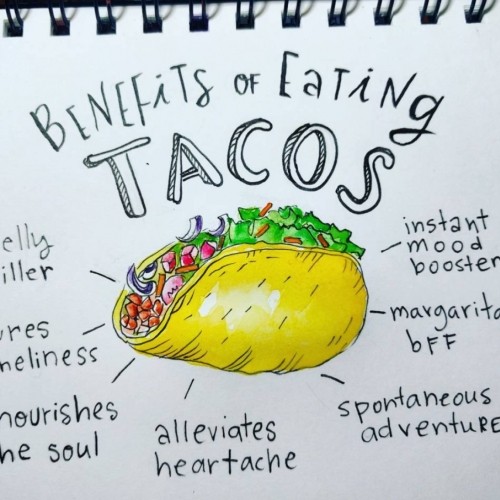 BENEFiTS OF EATiNg
TACOS
elly
iller
ures
neliness
nourishes
he soul
alleviates
heartache
instant
mood
booster
margarita
bff
spontaneous
adventuRE